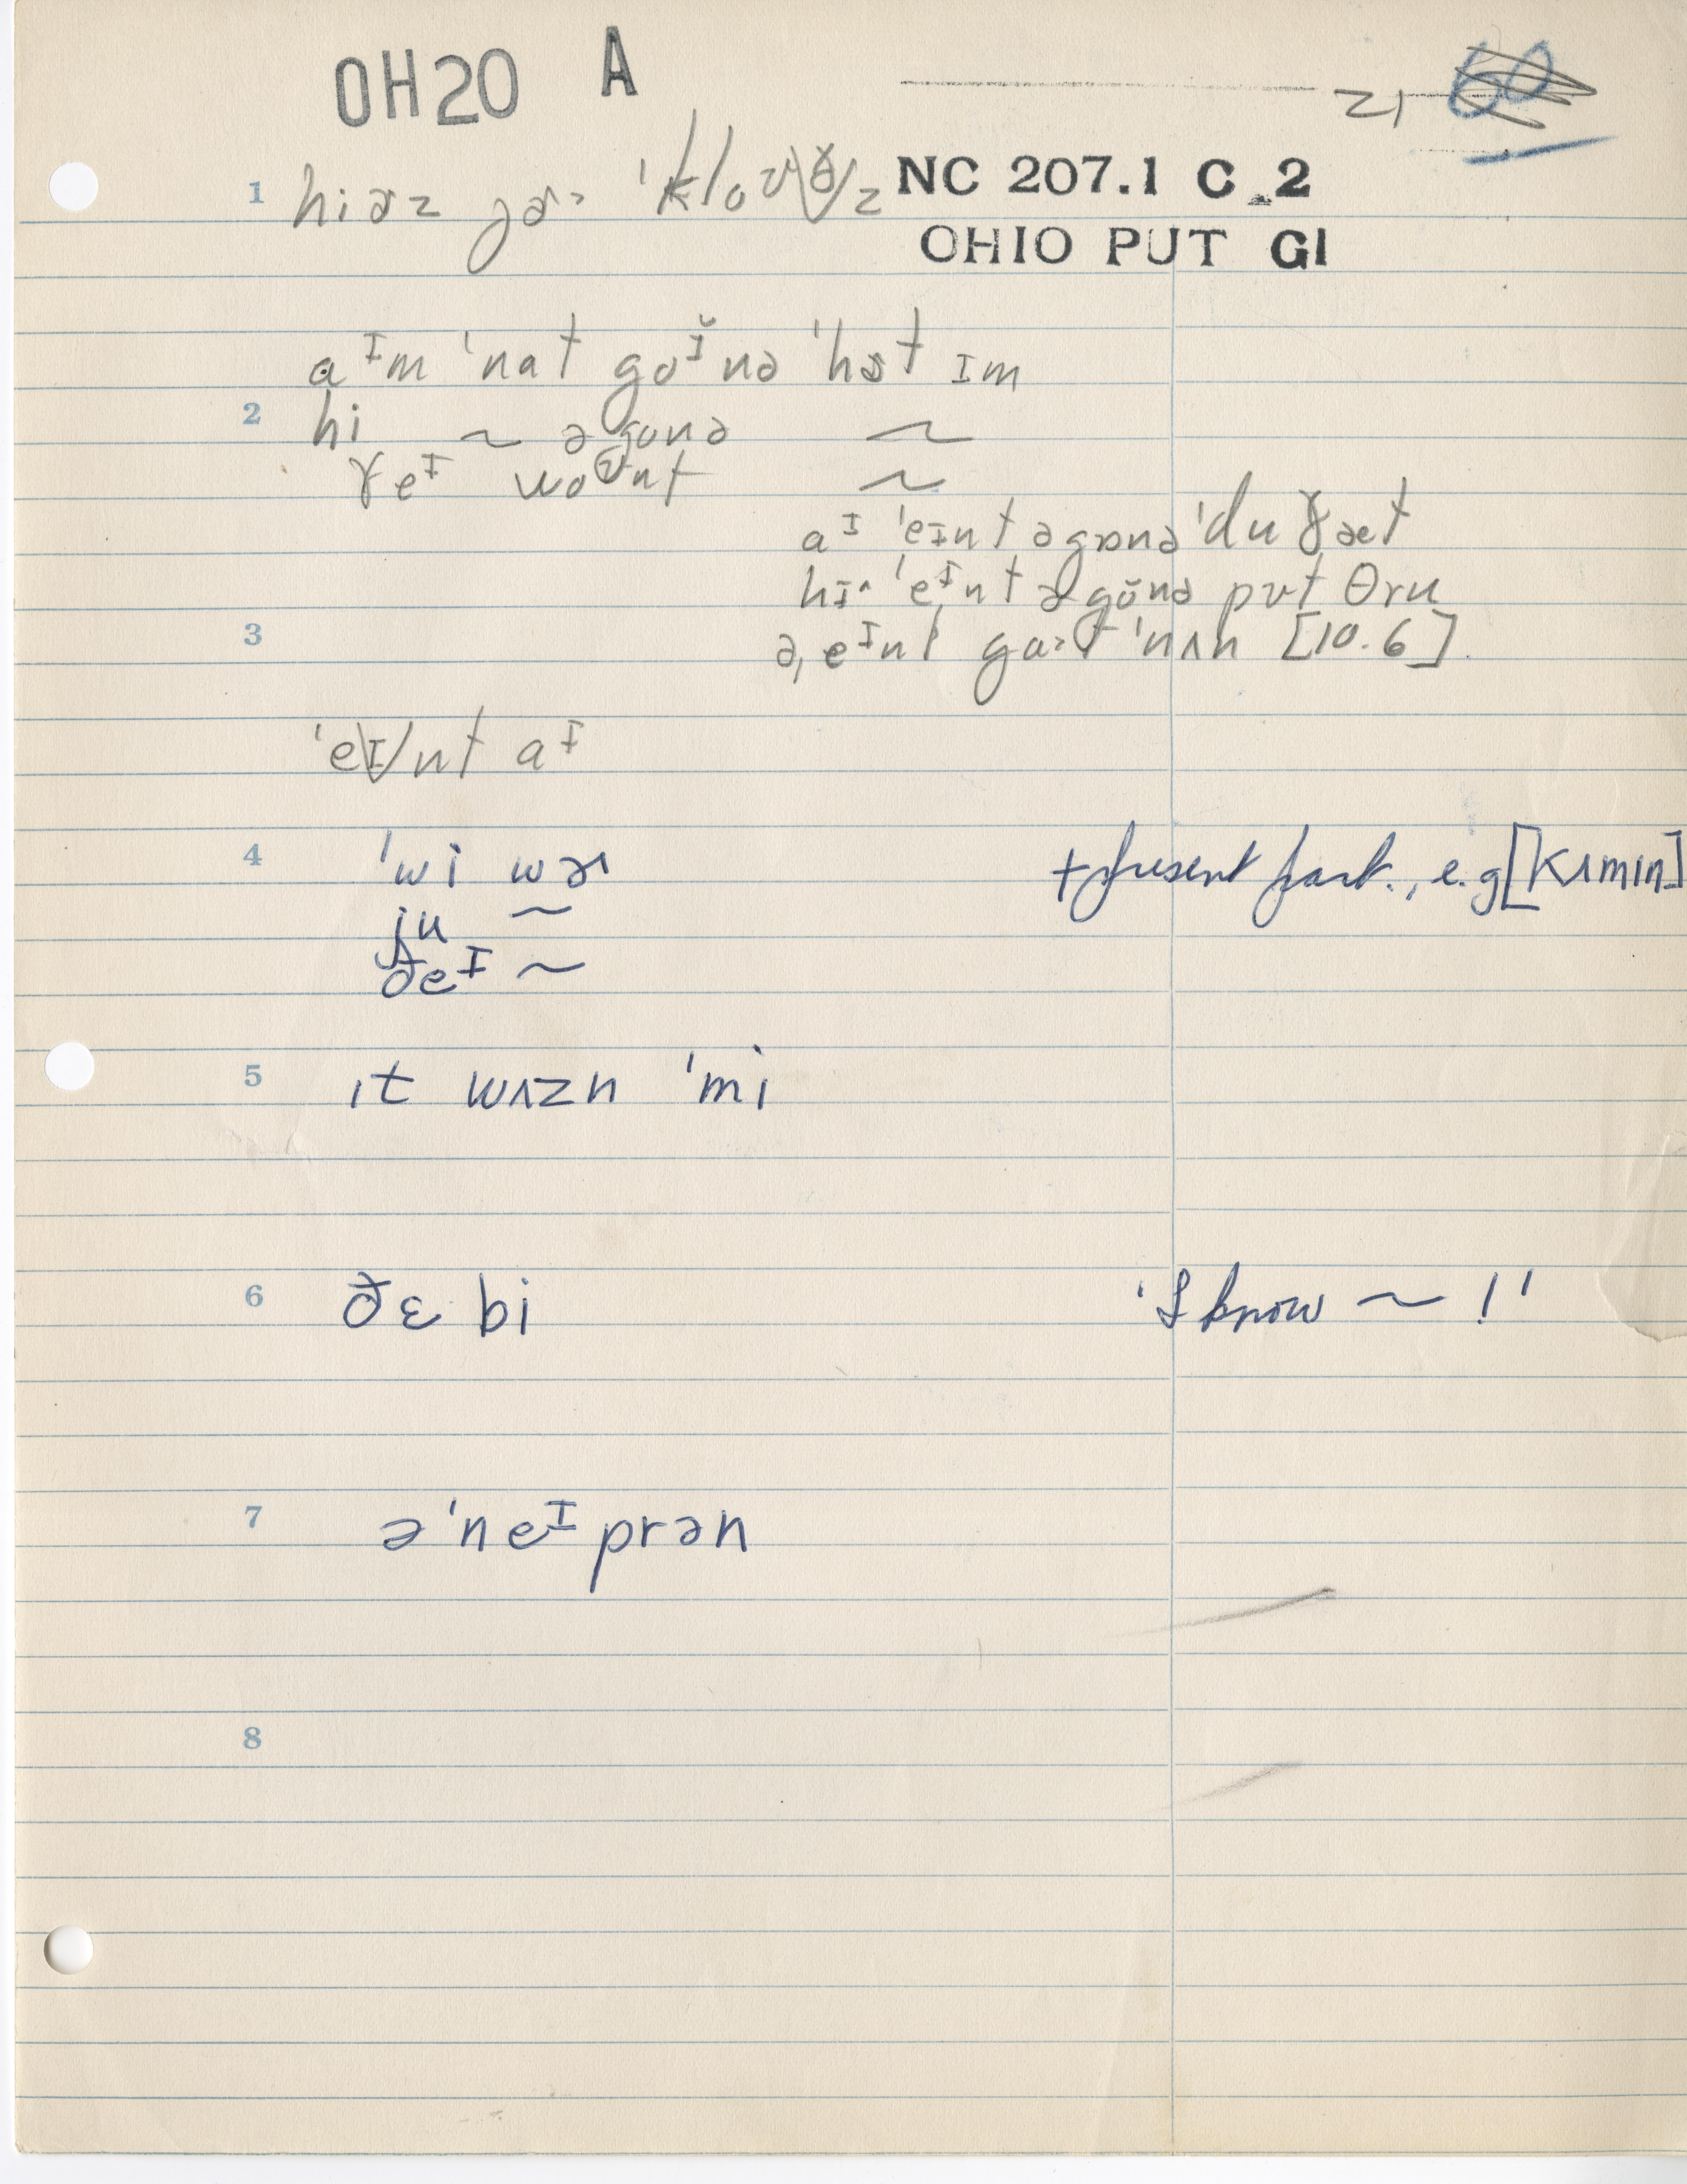 OH20 A
21
NC 207.1 C 2
OHIO PUT GI
1 hiɚz jɚ 'kloʊðz
aɪm 'nat goɪ̆nə 'hɜt ɪm
2 hi ~ əgunə ~
ðeɪ woʊnt ~
aɪ 'eɪnt əgɒnə 'du ðæt
hɪ 'eɪnt əgɔ̆nə pʊt θru
3 ə, eɪnt gat 'nʌn [10.6]
'eɪnt aɪ
4 'wi wɚ + present part., e.g [kʌmɪn]
ju ~
ðeɪ ~
5 ɪt wʌzn 'mi
6 ðɛ bi 'I know ~ !'
7 ə'neɪprən
8